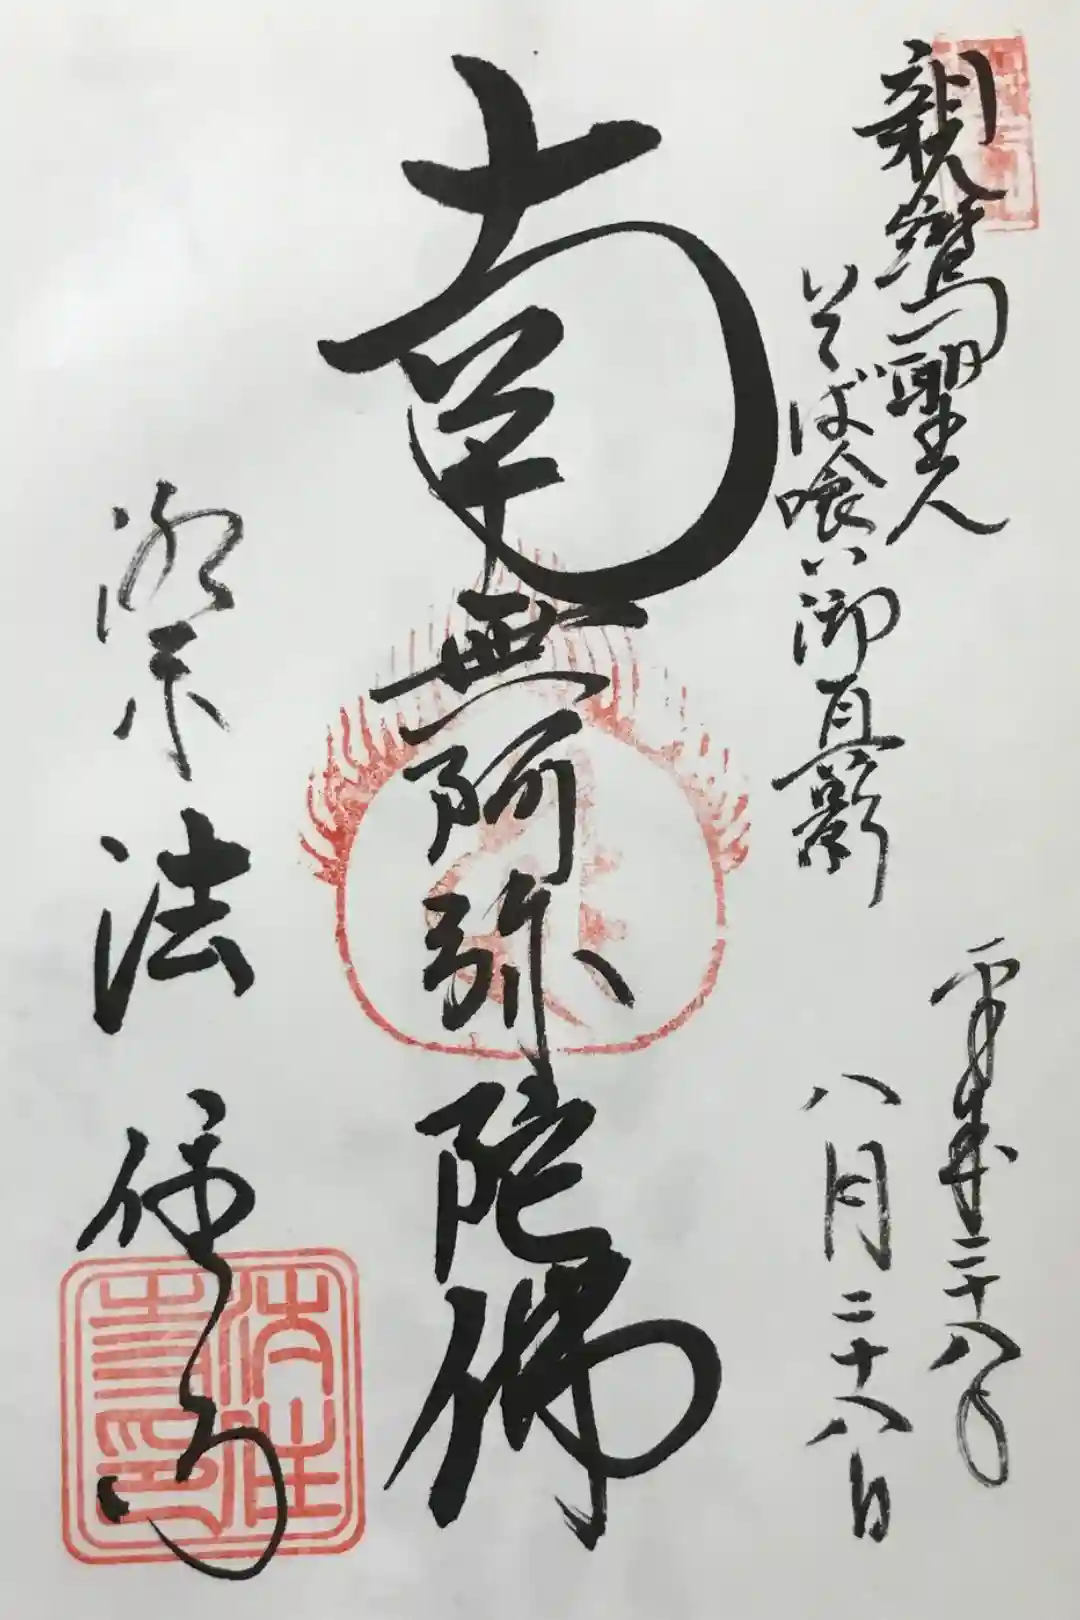 親鸞聖人
そば喰い御真影
平成二十八年
八月二十八日
南無阿弥陀佛
法住寺
法住寺印